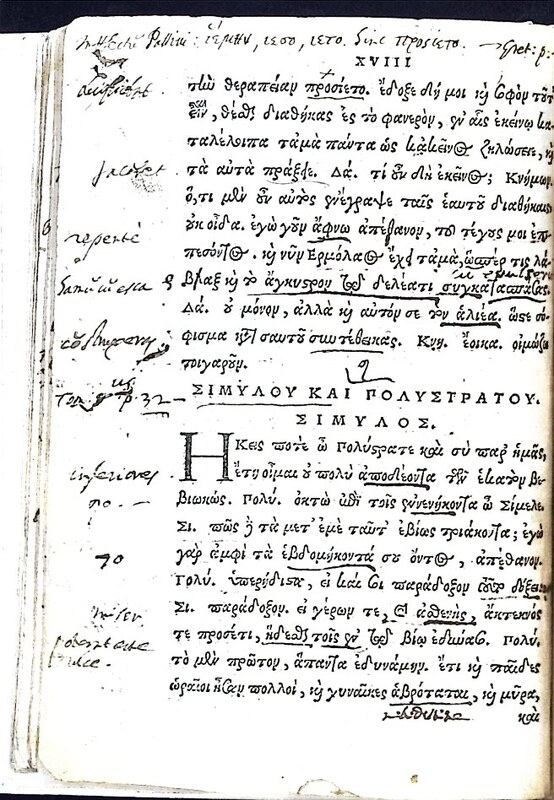 ἵεμην, ἵεσο, ἵετο. Sine προσίετο.
XVIII
τὴν θεραπείαν προσίετο. ἔδοξε δή μοι καὶ σοφὸν τοῦτ'
εἶναι, θέσθαι διαθήκας ἐς τὸ φανερὸν, ἐν αἷς ἐκείνῳ κα-
ταλέλοιπα τἀμὰ πάντα ὡς κἀκεῖνος ζηλώσειε, καὶ
τὰ αὐτὰ πράξειε. Δά. τί οὖν δὴ ἐκεῖνος; Κνήμων.
ὅ,τι μὲν οὖν αὐτὸς ἐνέγραψε ταῖς ἑαυτοῦ διαθήκαις
οὐκ οἶδα. ἐγὼ γοῦν ἄφνω ἀπέθανον, τοῦ τέγους μοι ἐπι-
πεσόντος. καὶ νῦν Ἑρμόλαος ἔχει τἀμὰ, ὥσπερ τις λά-
βραξ καὶ τὸ ἄγκιστρον τῷ δελέατι συγκατασπάσας.
Δά. οὐ μόνον, ἀλλὰ καὶ αὐτόν σε τὸν ἁλιέα. ὥστε σό-
φισμα κατὰ σαυτοῦ συντέθεικας. Κνη. ἔοικα. οἰμώζω
τοιγαροῦν.
ΣΙΜΥΛΟΥ ΚΑΙ ΠΟΛΥΣΤΡΑΤΟΥ.
ΣΙΜΥΛΟΣ.
ΗΚεις ποτὲ ὦ Πολύστρατε καὶ σὺ παρ' ἡμᾶς,
ἔτη οἶμαι οὐ πολὺ ἀποδέοντα τῶν ἑκατὸν βε-
βιωκώς. Πολύ. ὀκτὼ ἐπὶ τοῖς ἐνενήκοντα ὦ Σίμυλε
Σι. πῶς δὲ τὰ μετ' ἐμὲ ταῦτ' ἐβίως τριάκοντα; ἐγὼ
γὰρ ἀμφὶ τὰ ἑβδομήκοντά σου ὄντος, ἀπέθανον.
70
Πολύ. ὑπερήδιστα, εἰ καί σοι παράδοξον τοῦτο δόξει.
Σι. παράδοξον. εἰ γέρων τε, καὶ ἀσθενὴς, ἄτεκνός
τε προσέτι, ἥδεσθαι τοῖς ἐν τῷ βίῳ ἐδύνασο. Πολύ.
τὸ μὲν πρῶτον, ἅπαντα ἐδυνάμην. ἔτι καὶ παῖδες
ὡραῖοι ἦσαν πολλοὶ, καὶ γυναῖκες ἁβρόταται, καὶ μύρα,
καὶ